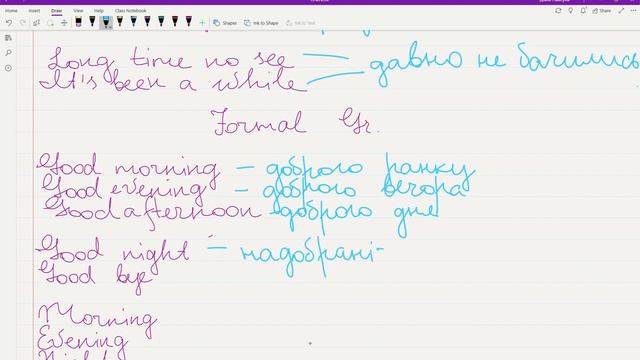 File Home Insert Draw View Help Class Notebook
Shapes Ink to Shape Ink to Text
Long time no see — давно не бачились
It's been a while
Formal Gr.
Good morning – доброго ранку
Good evening = доброго вечора
Good afternoon - доброго дня
Good night – надобрані
Good bye
Morning
Evening
Night